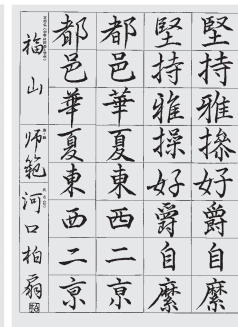 堅持雅操好爵自縻
堅持雅操好爵自縻
都邑華夏東西二亰
都邑華夏東西二亰
福山 师範 河口柏